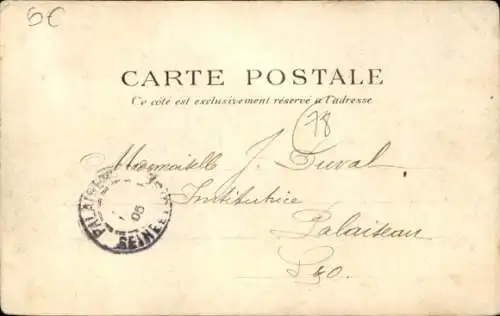 6€
CARTE POSTALE
Ce coté est exclusivement réservé a l'adresse
78
Mademoiselle J. Duval
Institutrice
Palaiseau
S&O.
PALAISEAU
05
SEINE ET